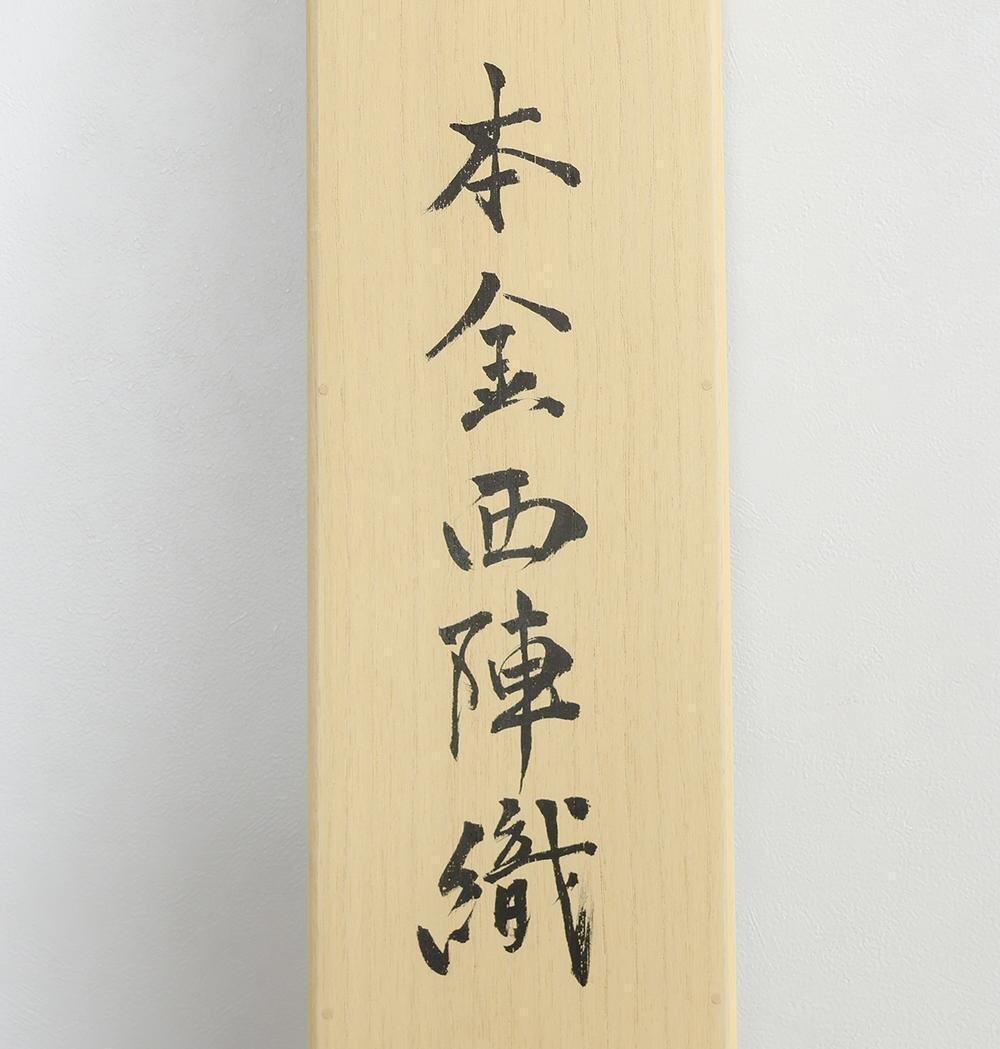 本金西陣織